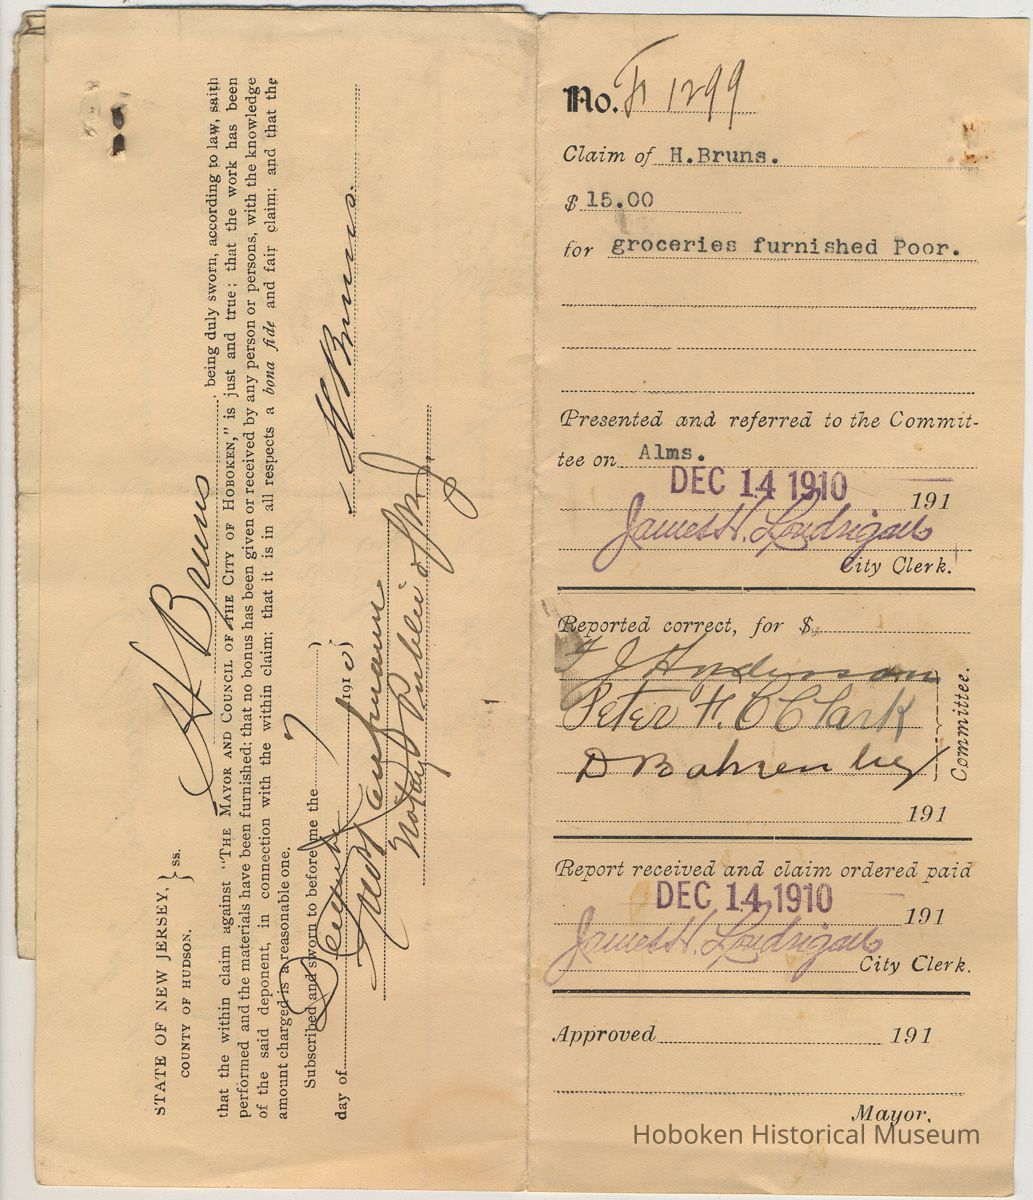 STATE OF NEW JERSEY, } ss.
COUNTY OF HUDSON.
H Bruns being duly sworn, according to law, saith
that the within claim against "THE MAYOR AND COUNCIL OF THE CITY OF HOBOKEN," is just and true; that the work has been
performed and the materials have been furnished; that no bonus has been given or received by any person or persons, with the knowledge
of the said deponent, in connection with the within claim; that it is in all respects a bona fide and fair claim; and that the
amount charged is a reasonable one.
Subscribed and sworn to before me the 7
day of 1910
H Bruns.
Kaufmann
Notary Public of N. J.
No. 1299
Claim of H.Bruns.
$ 15.00
for groceries furnished Poor.
Presented and referred to the Commit-
tee on Alms.
DEC 14 1910 191
James H. Londrigan
City Clerk.
Reported correct, for $
Committee.
Peter F. C Clark
D Bahrenburg
191
Report received and claim ordered paid
DEC 14 1910 191
James H. Londrigan
City Clerk.
Approved 191
Mayor.
Hoboken Historical Museum